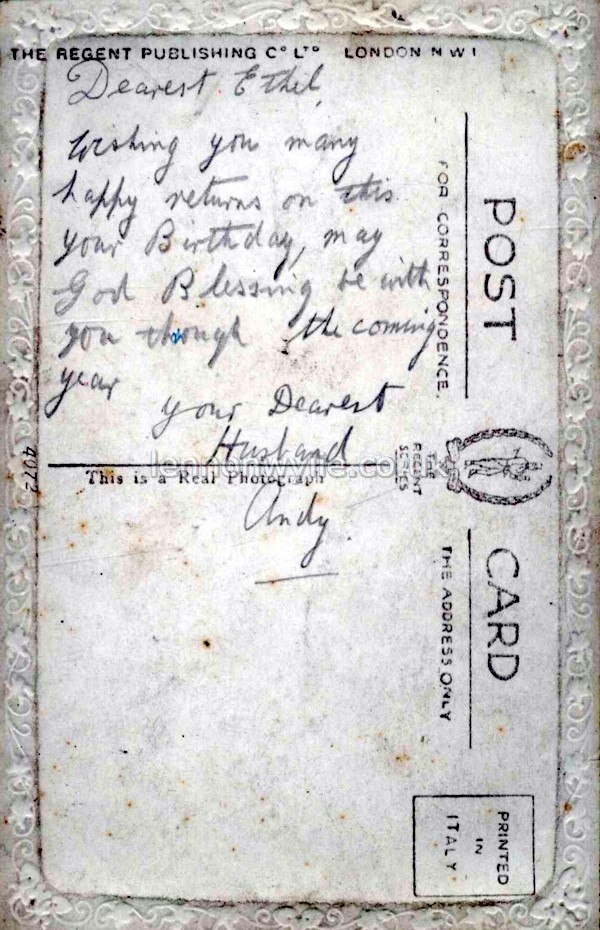 THE REGENT PUBLISHING Cº Lᵀᴰ LONDON N W 1
Dearest Ethel,
Wishing you many
happy returns on this
your Birthday, may
God Blessing be with
you though the coming
year
your Dearest
Husband
Andy
This is a Real Photograph
4072
POST
FOR CORRESPONDENCE.
THE
REGENT
SERIES
CARD
THE ADDRESS ONLY
PRINTED
IN
ITALY